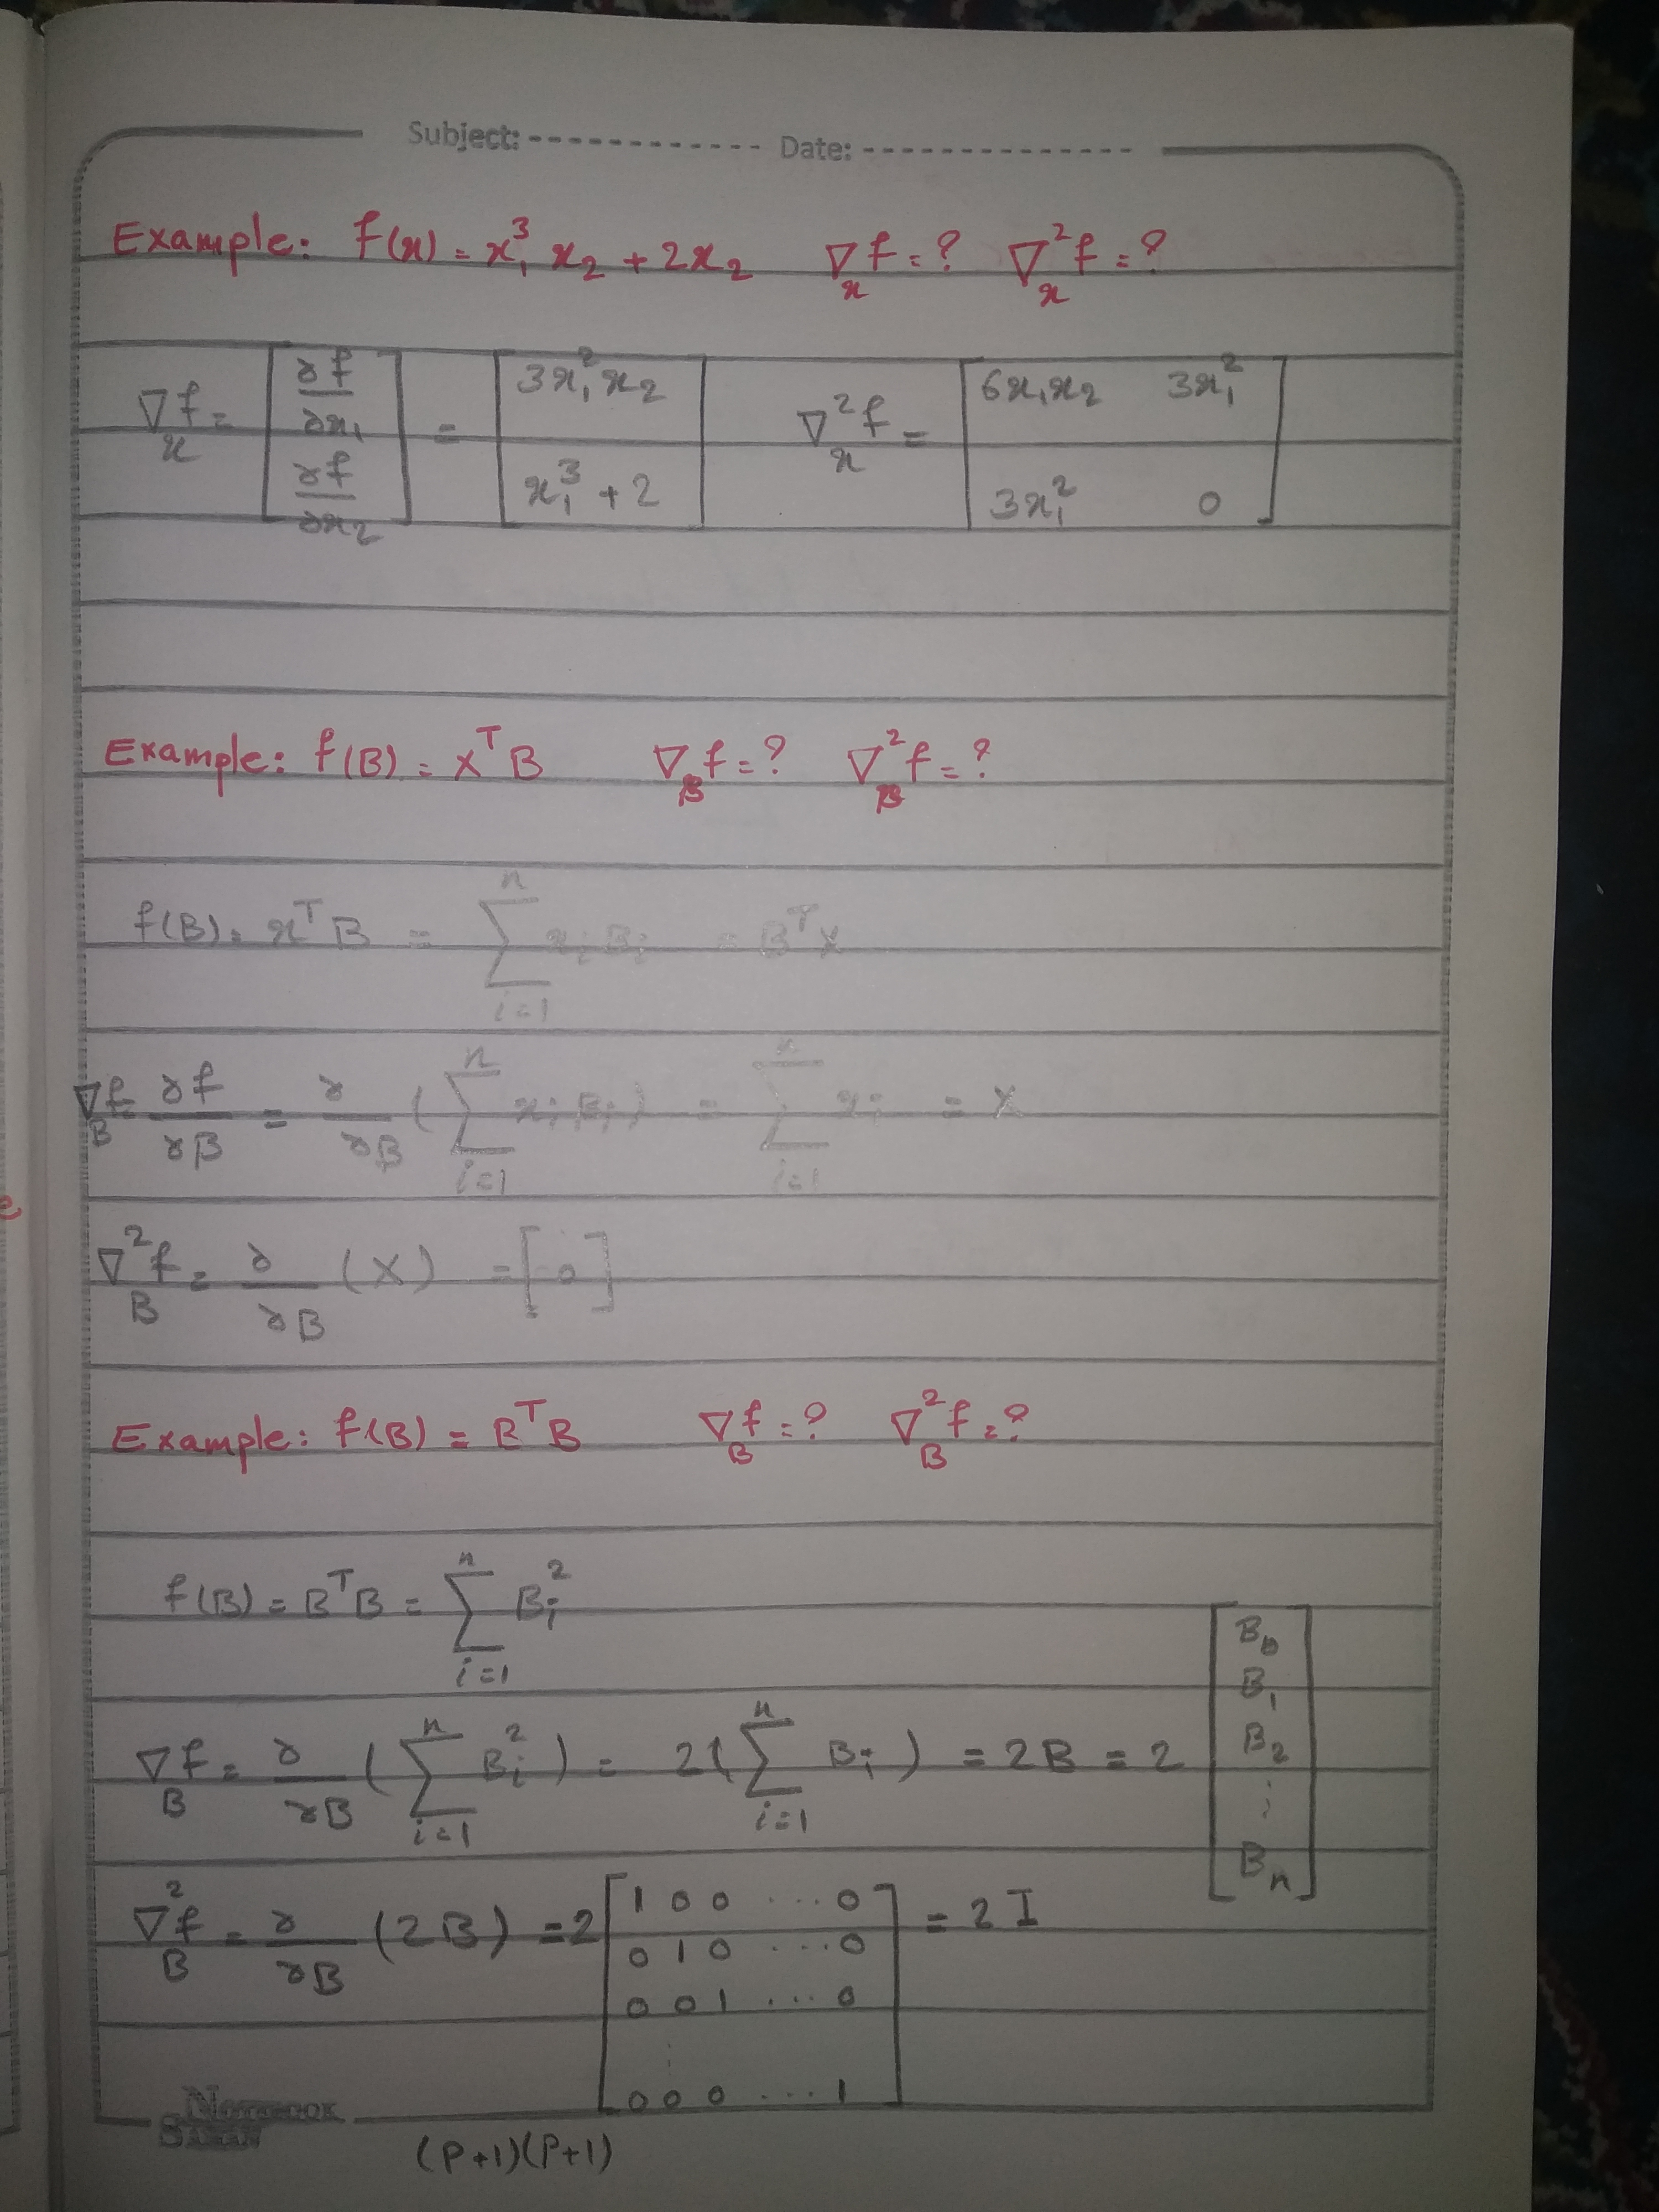 Subject: ------------ Date: --------------
Example: f(x) = x₁³ x₂ + 2x₂ ∇f = ? ∇²f = ?
x x
∇f = [ ∂f/∂x₁ ∂f/∂x₂ ] = [ 3x₁²x₂ x₁³ + 2 ] ∇²f = [ 6x₁x₂ 3x₁² 3x₁² 0 ]
x x
Example: f(B) = X^T B ∇f = ? ∇²f = ?
B B
f(B) = x^T B = Σ_{i=1}^{n} xᵢ Bᵢ = B^T X
∇f = ∂f/∂B = ∂/∂B ( Σ_{i=1}^{n} xᵢ Bᵢ ) = Σ_{i=1}^{n} xᵢ = X
B
∇²f = ∂/∂B (X) = [ 0 ]
B
Example: f(B) = B^T B ∇f = ? ∇²f = ?
B B
f(B) = B^T B = Σ_{i=1}^{n} Bᵢ²
∇f = ∂/∂B ( Σ_{i=1}^{n} Bᵢ² ) = 2( Σ_{i=1}^{n} Bᵢ ) = 2B = 2 [ B₀ B₁ B₂ ⋮ Bₙ ]
B
∇²f = ∂/∂B (2B) = 2 [ 1 0 0 ... 0
B
0 1 0 ... 0
0 0 1 ... 0
⋮
0 0 0 ... 1 ] = 2 I
NOTEBOOK
(P+1)(P+1)